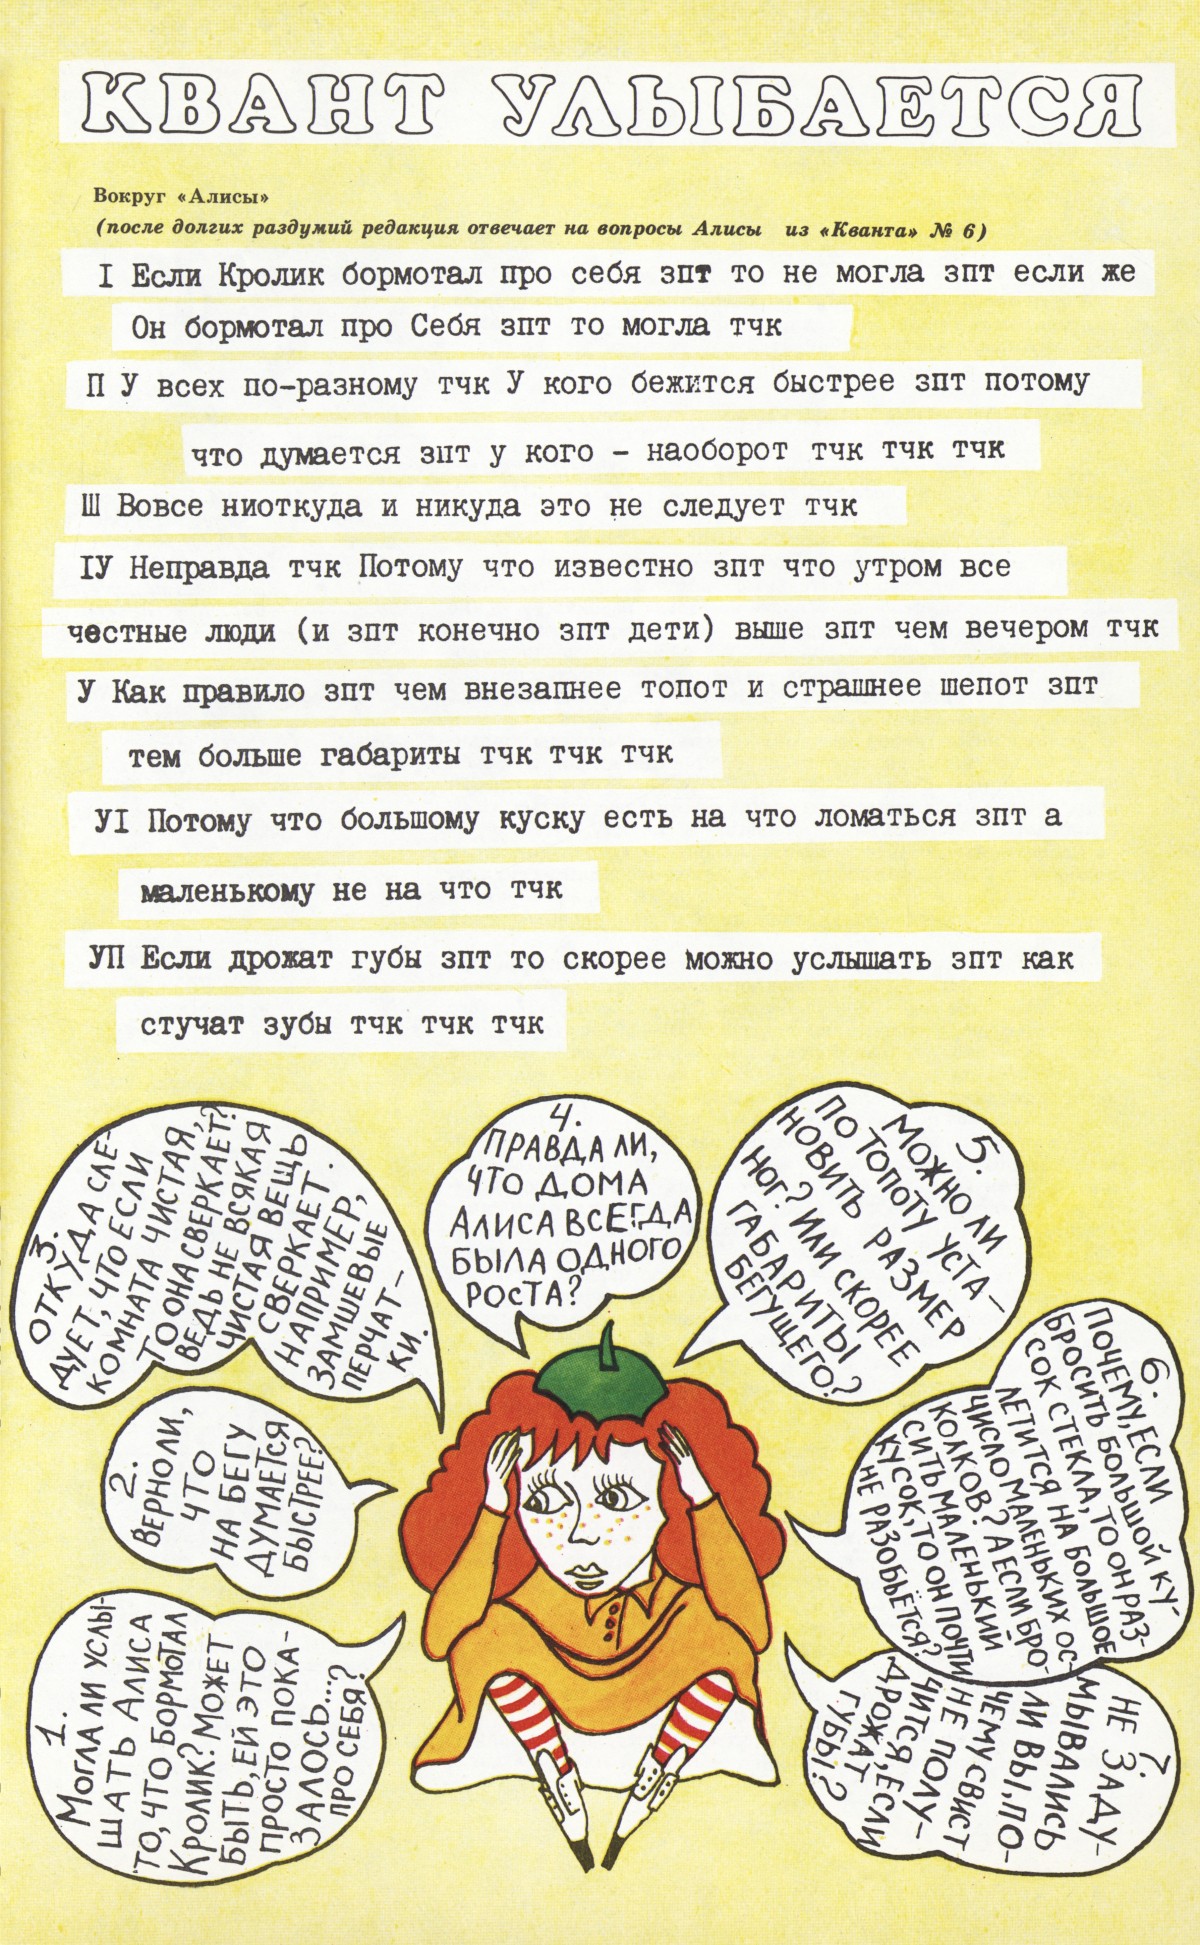 КВАНТ УЛЫБАЕТСЯ
Вокруг «Алисы»
(после долгих раздумий редакция отвечает на вопросы Алисы из «Кванта» № 6)
I Если Кролик бормотал про себя зпт то не могла зпт если же
Он бормотал про Себя зпт то могла тчк
П У всех по-разному тчк У кого бежится быстрее зпт потому
что думается зпт у кого – наоборот тчк тчк тчк
Ш Вовсе ниоткуда и никуда это не следует тчк
IУ Неправда тчк Потому что известно зпт что утром все
честные люди (и зпт конечно зпт дети) выше зпт чем вечером тчк
У Как правило зпт чем внезапнее топот и страшнее шепот зпт
тем больше габариты тчк тчк тчк
УI Потому что большому куску есть на что ломаться зпт а
маленькому не на что тчк
УП Если дрожат губы зпт то скорее можно услышать зпт как
стучат зубы тчк тчк тчк
3.
ОТКУДА СЛЕ-
ДУЕТ, ЧТО ЕСЛИ
КОМНАТА ЧИСТАЯ,
ТО ОНА СВЕРКАЕТ?
ВЕДЬ НЕ ВСЯКАЯ
ЧИСТАЯ ВЕЩЬ
СВЕРКАЕТ.
НАПРИМЕР,
ЗАМШЕВЫЕ
ПЕРЧАТ-
КИ.
4.
ПРАВДА ЛИ,
ЧТО ДОМА
АЛИСА ВСЕГДА
БЫЛА ОДНОГО
РОСТА?
5.
МОЖНО ЛИ
ПО ТОПОТУ УСТА-
НОВИТЬ РАЗМЕР
НОГ? ИЛИ СКОРЕЕ
ГАБАРИТЫ
БЕГУЩЕГО?
2.
ВЕРНО ЛИ,
ЧТО
НА БЕГУ
ДУМАЕТСЯ
БЫСТРЕЕ?
6.
ПОЧЕМУ, ЕСЛИ
БРОСИТЬ БОЛЬШОЙ КУ-
СОК СТЕКЛА, ТО ОН РАЗ-
ЛЕТИТСЯ НА БОЛЬШОЕ
ЧИСЛО МАЛЕНЬКИХ ОС-
КОЛКОВ? А ЕСЛИ БРО-
СИТЬ МАЛЕНЬКИЙ
КУСОК, ТО ОН ПОЧТИ
НЕ РАЗОБЬЁТСЯ?
1.
МОГЛА ЛИ УСЛЫ-
ШАТЬ АЛИСА
ТО, ЧТО БОРМОТАЛ
КРОЛИК? МОЖЕТ
БЫТЬ, ЕЙ ЭТО
ПРОСТО ПОКА-
ЗАЛОСЬ...
ПРО СЕБЯ?
7.
НЕ ЗАДУ-
МЫВАЛИСЬ
ЛИ ВЫ, ПО-
ЧЕМУ СВИСТ
НЕ ПОЛУ-
ЧИТСЯ, ЕСЛИ
ДРОЖАТ
ГУБЫ?